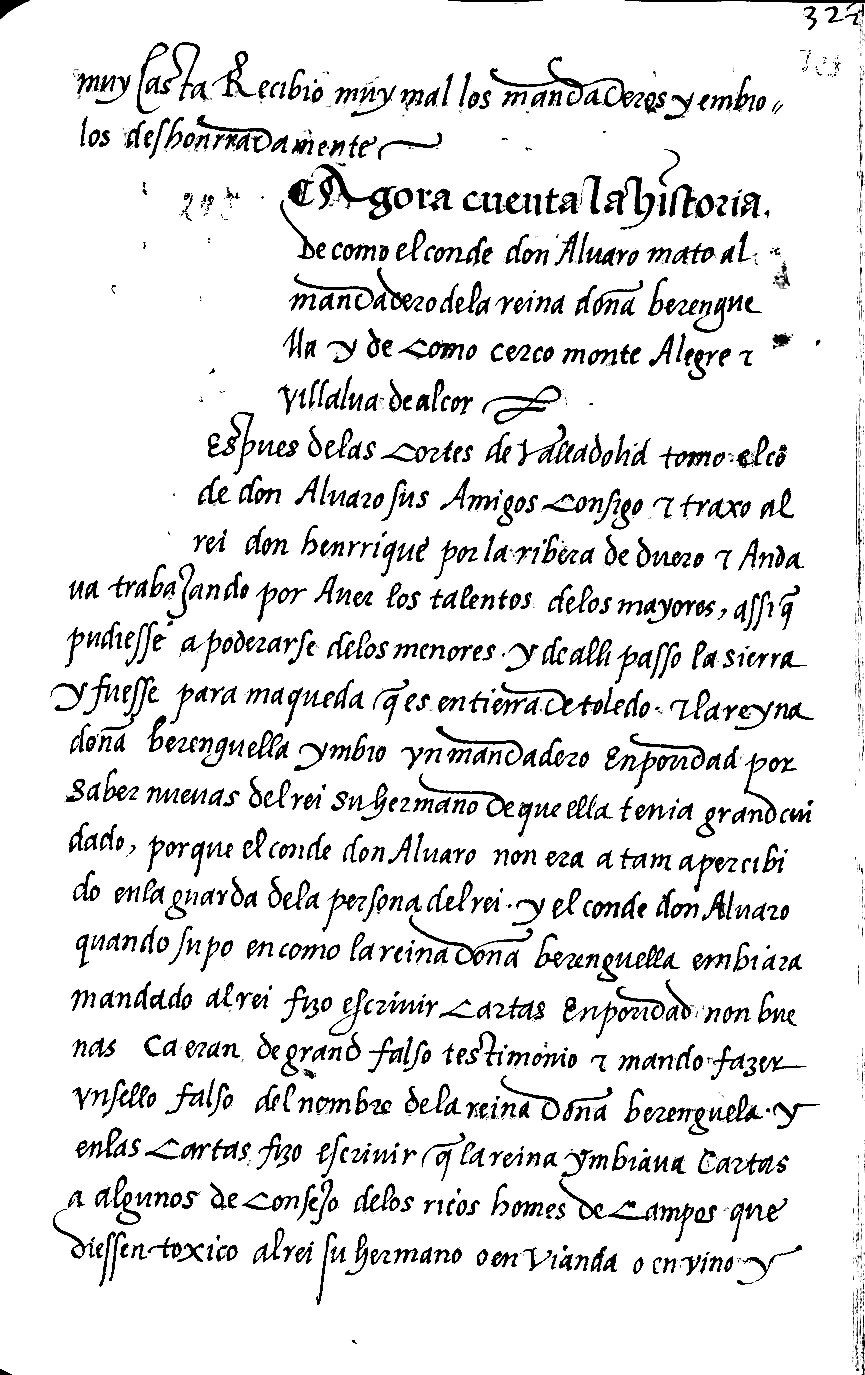 322
muy Casta Recibio muy mal los mandaderos y embio„
los deshonrradamente
Agora cuenta la historia.
De como el conde don Alvaro mato al
mandadero dela reina doña berengue
lla y de como cerco monte Alegre ⁊
Villalva de alcor
Espues delas cortes de Valladolid tomo el cõ
de don Alvaro sus Amigos consigo ⁊ traxo al
rei don henrrique por la ribera de duero ⁊ Anda
va trabajando por Aver los talentos delos mayores, assi q̃
pudiesse apoderarse delos menores. y de alli passo la sierra
y fuesse para maqueda q̃ es en tierra de toledo. ⁊ la reyna
doña berenguella ymbio vn mandadero En poridad por
saber nuevas del rei su hermano de que ella tenia grand cui
dado, porque el conde don Alvaro non era a tam apercibi
do en la guarda dela persona del rei. y el conde don Alvaro
quando supo en como la reina doña berenguella embiara
mandado al rei fizo escrivir cartas En poridad non bue
nas Ca eran de grand falso testimonio ⁊ mando fazer
vn sello falso del nombre de la reina Doña berenguela. y
en las cartas fizo escrivir q̃ la reina ymbiava Cartas
a algunos de consejo delos ricos homes de campos que
diessen toxico al rei su hermano o en vianda o en vino y